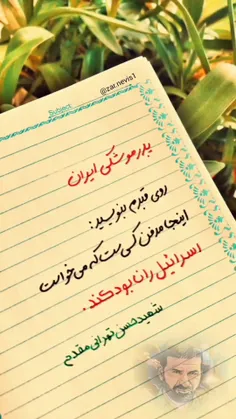 @zar.nevis1
Subject:
پدر موشکی ایران
روی قبرم بنویسید:
اینجا مدفن کسی ست که می خواست
اسرائیل را نابود کند.
شهید حسن تهرانی مقدم